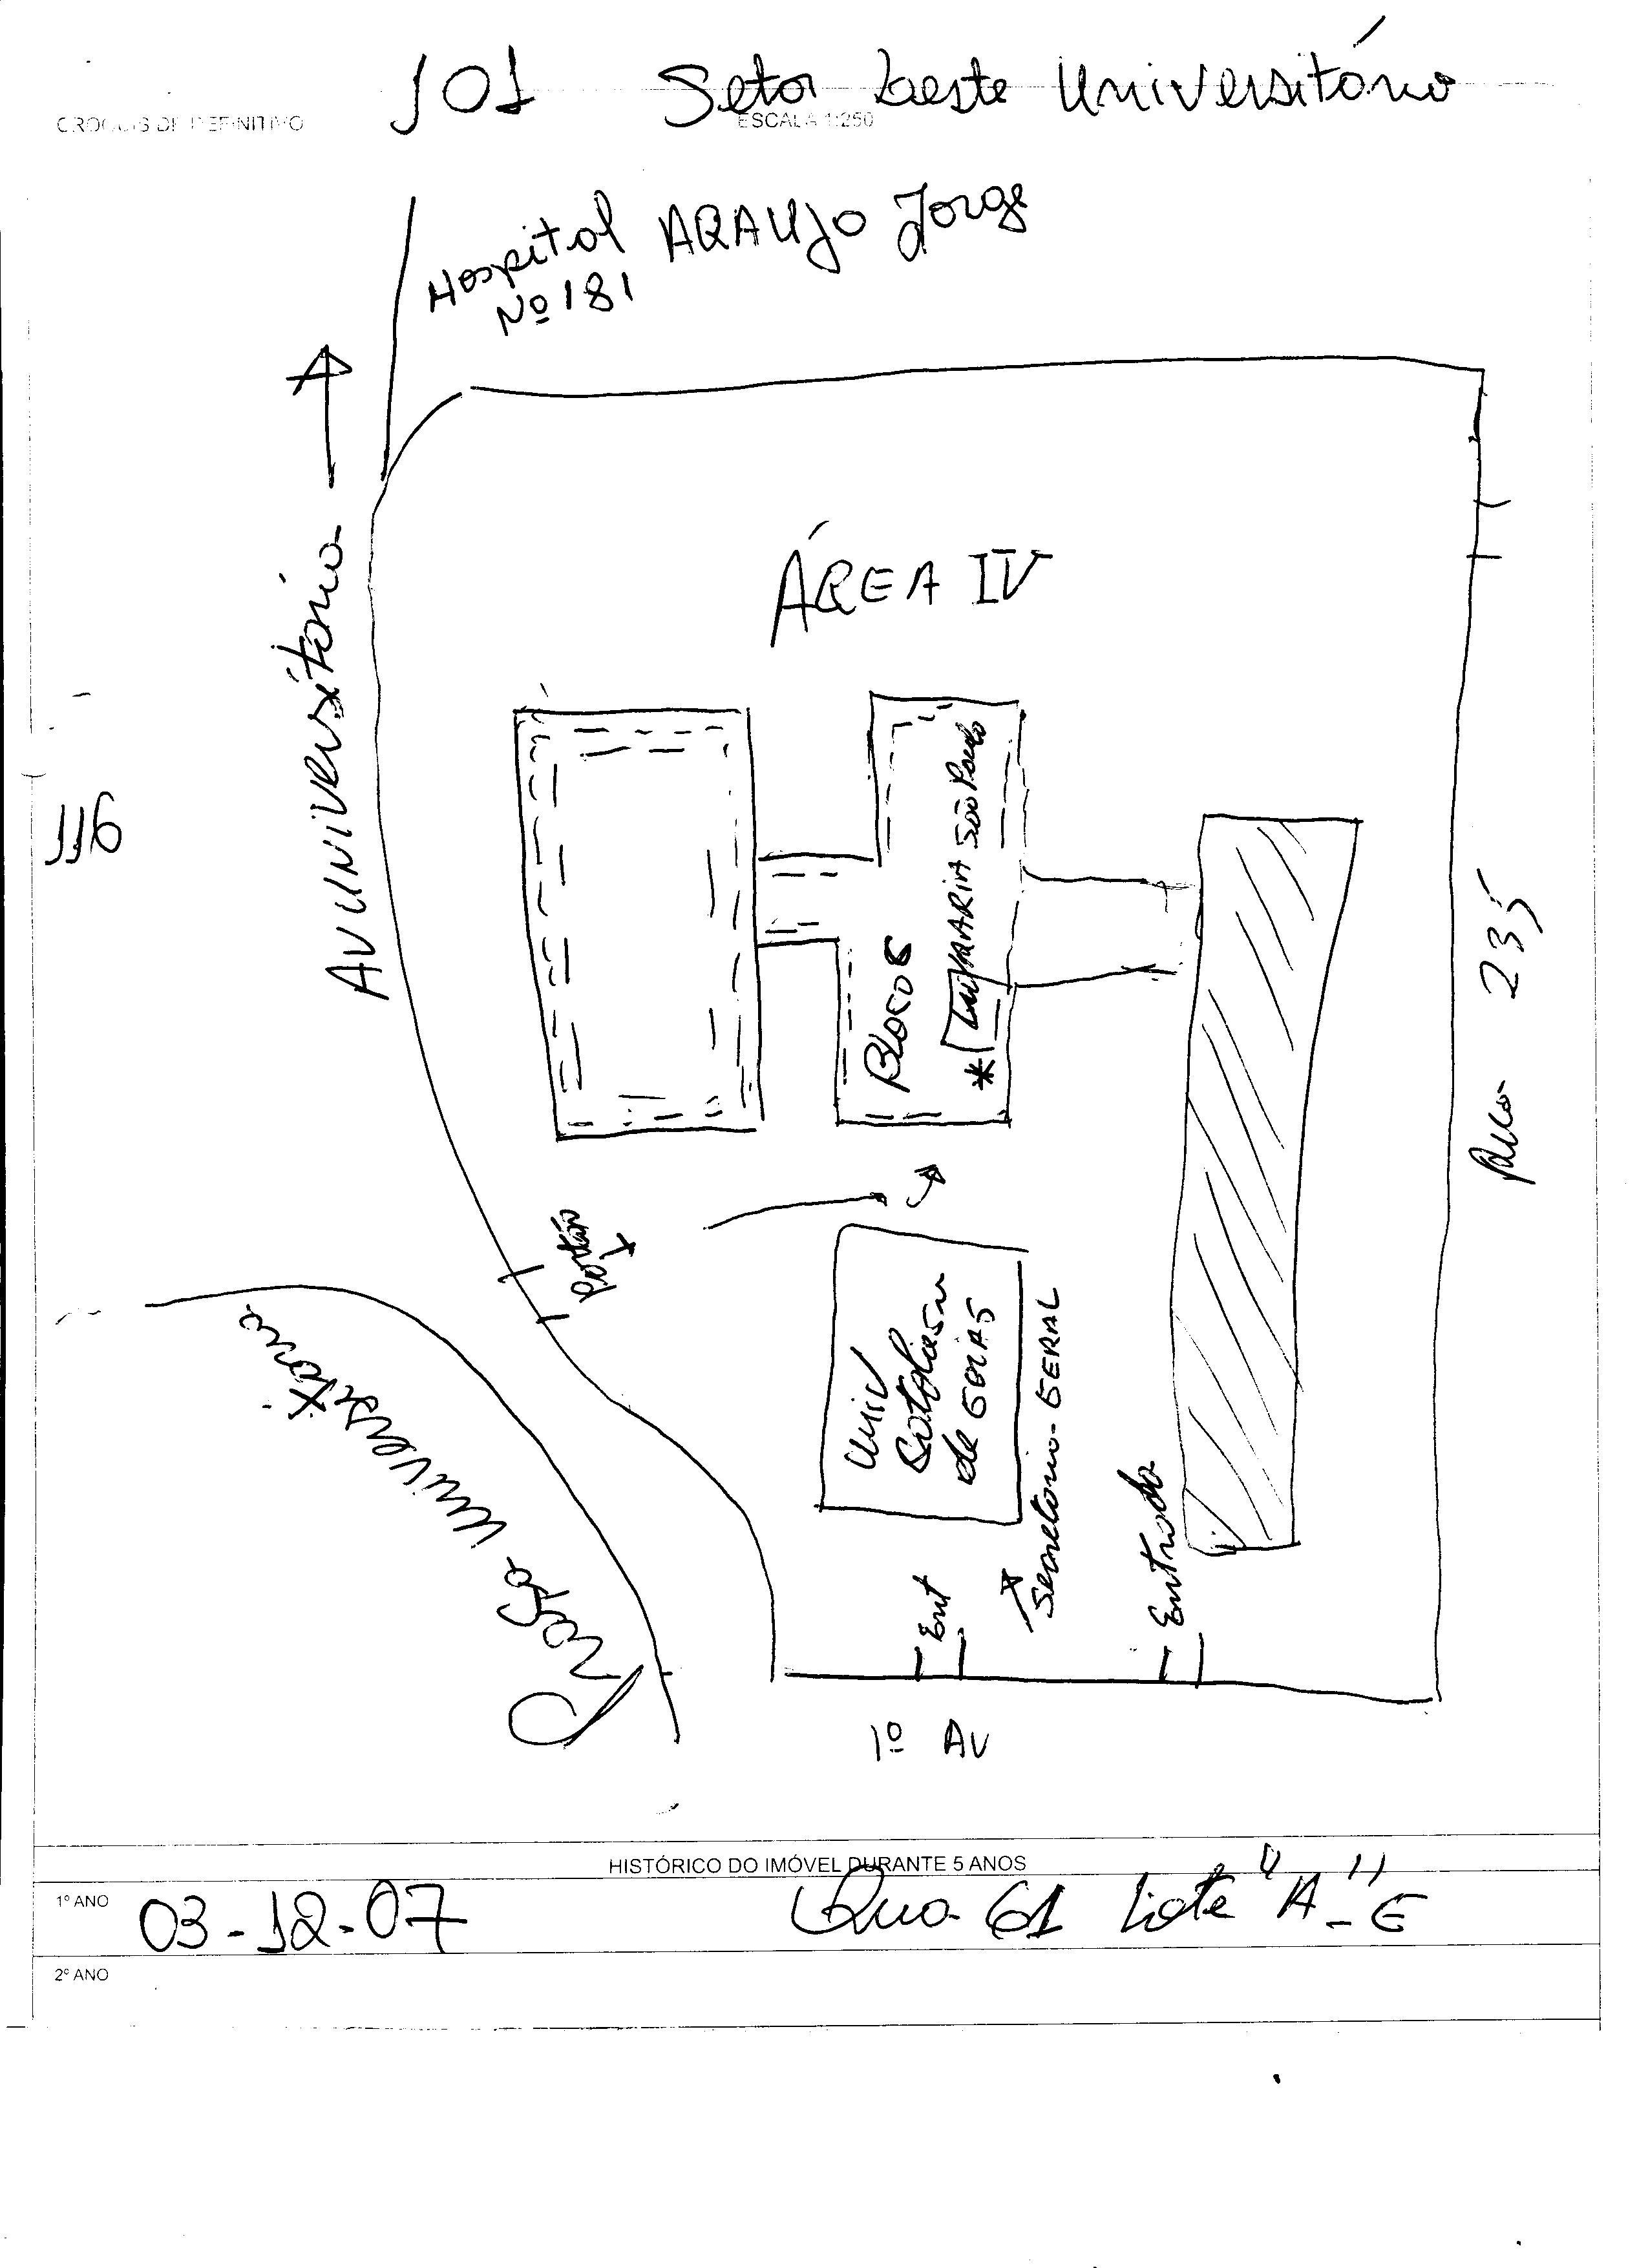 101 Setor Leste Universitário
CROQUIS DEFINITIVO
ESCALA 1:250
Hospital ARAUJO Jorge
Nº 181
ÁREA IV
AV UNIVERSitário
116
BLOCO
LIVRARIA São Paulo
Rua 235
Portão
Univ
Catolica
de GOIAS
Secretaria GERAL
Entrada
Ent
Praça Universitária
1º AV
HISTÓRICO DO IMÓVEL DURANTE 5 ANOS
1º ANO 03-12-07 Qua 61 Lote "A" - E
2º ANO